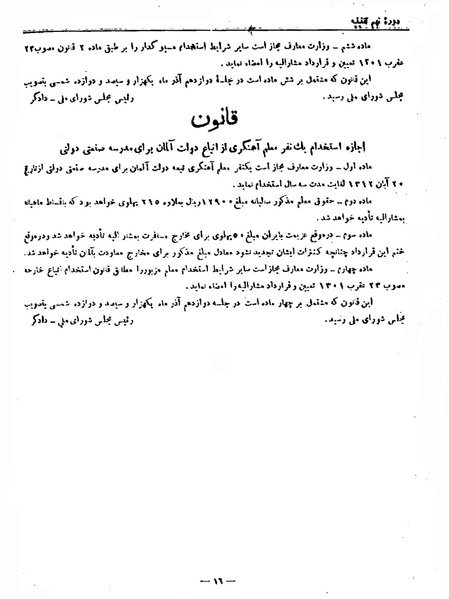 دورهٔ نهم تقنینیه
ماده ششم ـ وزارت معارف مجاز است سایر شرایط استخدام مسیو گدار را بر طبق ماده ۲ قانون مصوب ۲۳
عقرب ۱۳۰۱ تعیین و قرارداد مشارالیه را امضاء نماید.
این قانون که مشتمل بر شش ماده است در جلسهٔ دوازدهم آذر ماه یکهزار و سیصد و دوازده شمسی بتصویب
مجلس شورای ملی رسید. رئیس مجلس شورای ملی ـ دادگر
قانون
اجازه استخدام یك نفر معلم آهنگری از اتباع دولت آلمان برای مدرسه صنعتی دولتی
ماده اول ـ وزارت معارف مجاز است یکنفر معلم آهنگری تبعه دولت آلمان برای مدرسه صنعتی دولتی از تاریخ
۲۰ آبان ۱۳۱۲ لغایت مدت سه سال استخدام نماید.
ماده دوم ـ حقوق معلم مذکور سالیانه مبلغ ۱۲۹۰۰ ریال بعلاوه ۲۱۵ پهلوی خواهد بود که باقساط ماهیانه
بمشارالیه تأدیه خواهد شد.
ماده سوم ـ درموقع عزیمت بایران مبلغ ۵۰ پهلوی برای مخارج مسافرت بمشارالیه تأدیه خواهد شد ودرموقع
ختم این قرارداد چنانچه کنترات ایشان تجدید نشود معادل مبلغ مذکور برای مخارج معاودت بآلمان تأدیه خواهد شد.
ماده چهارم ـ وزارت معارف مجاز است سایر شرایط استخدام معلم مزبور را مطابق قانون استخدام اتباع خارجه
مصوب ۲۳ عقرب ۱۳۰۱ تعیین و قرارداد مشارالیه را امضاء نماید.
این قانون که مشتمل بر چهار ماده است در جلسه دوازدهم آذر ماه یکهزار و سیصد و دوازده شمسی بتصویب
مجلس شورای ملی رسید. رئیس مجلس شورای ملی ـ دادگر
ـ ۱۶ ـ